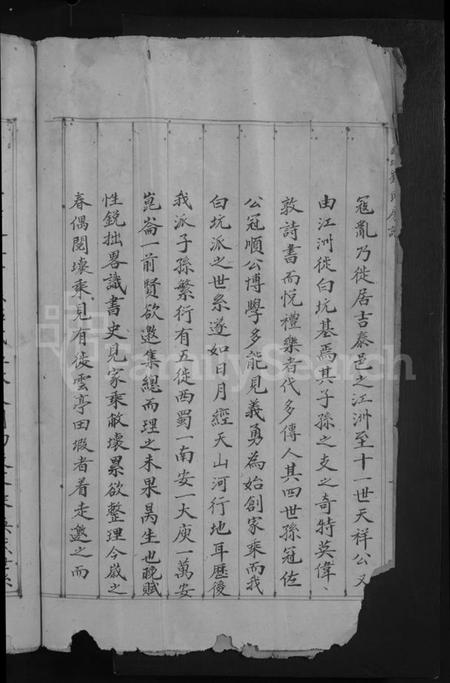 寇亂乃徙居吉泰邑之江洲至十一世天祥公又
由江洲徙白坑基焉其子孫之支之奇特英偉、
敦詩書而悅禮樂者代多傳人其四世孫冠佐
公冠順公博學多能見義勇為始創家乘而我
白坑派之世系遂如日月經天山河行地耳歷後
我派子孫繁衍有五徙西蜀一南安一大庾一萬安
崑崙一前賢欲邀集總而理之未果昺生也晚賦
性鋭拙畧識書史見家乘敝壞累欲整理今歲之
春偶閱壞乘見有徙雲亭田塅者着走邀之而
FamilySearch